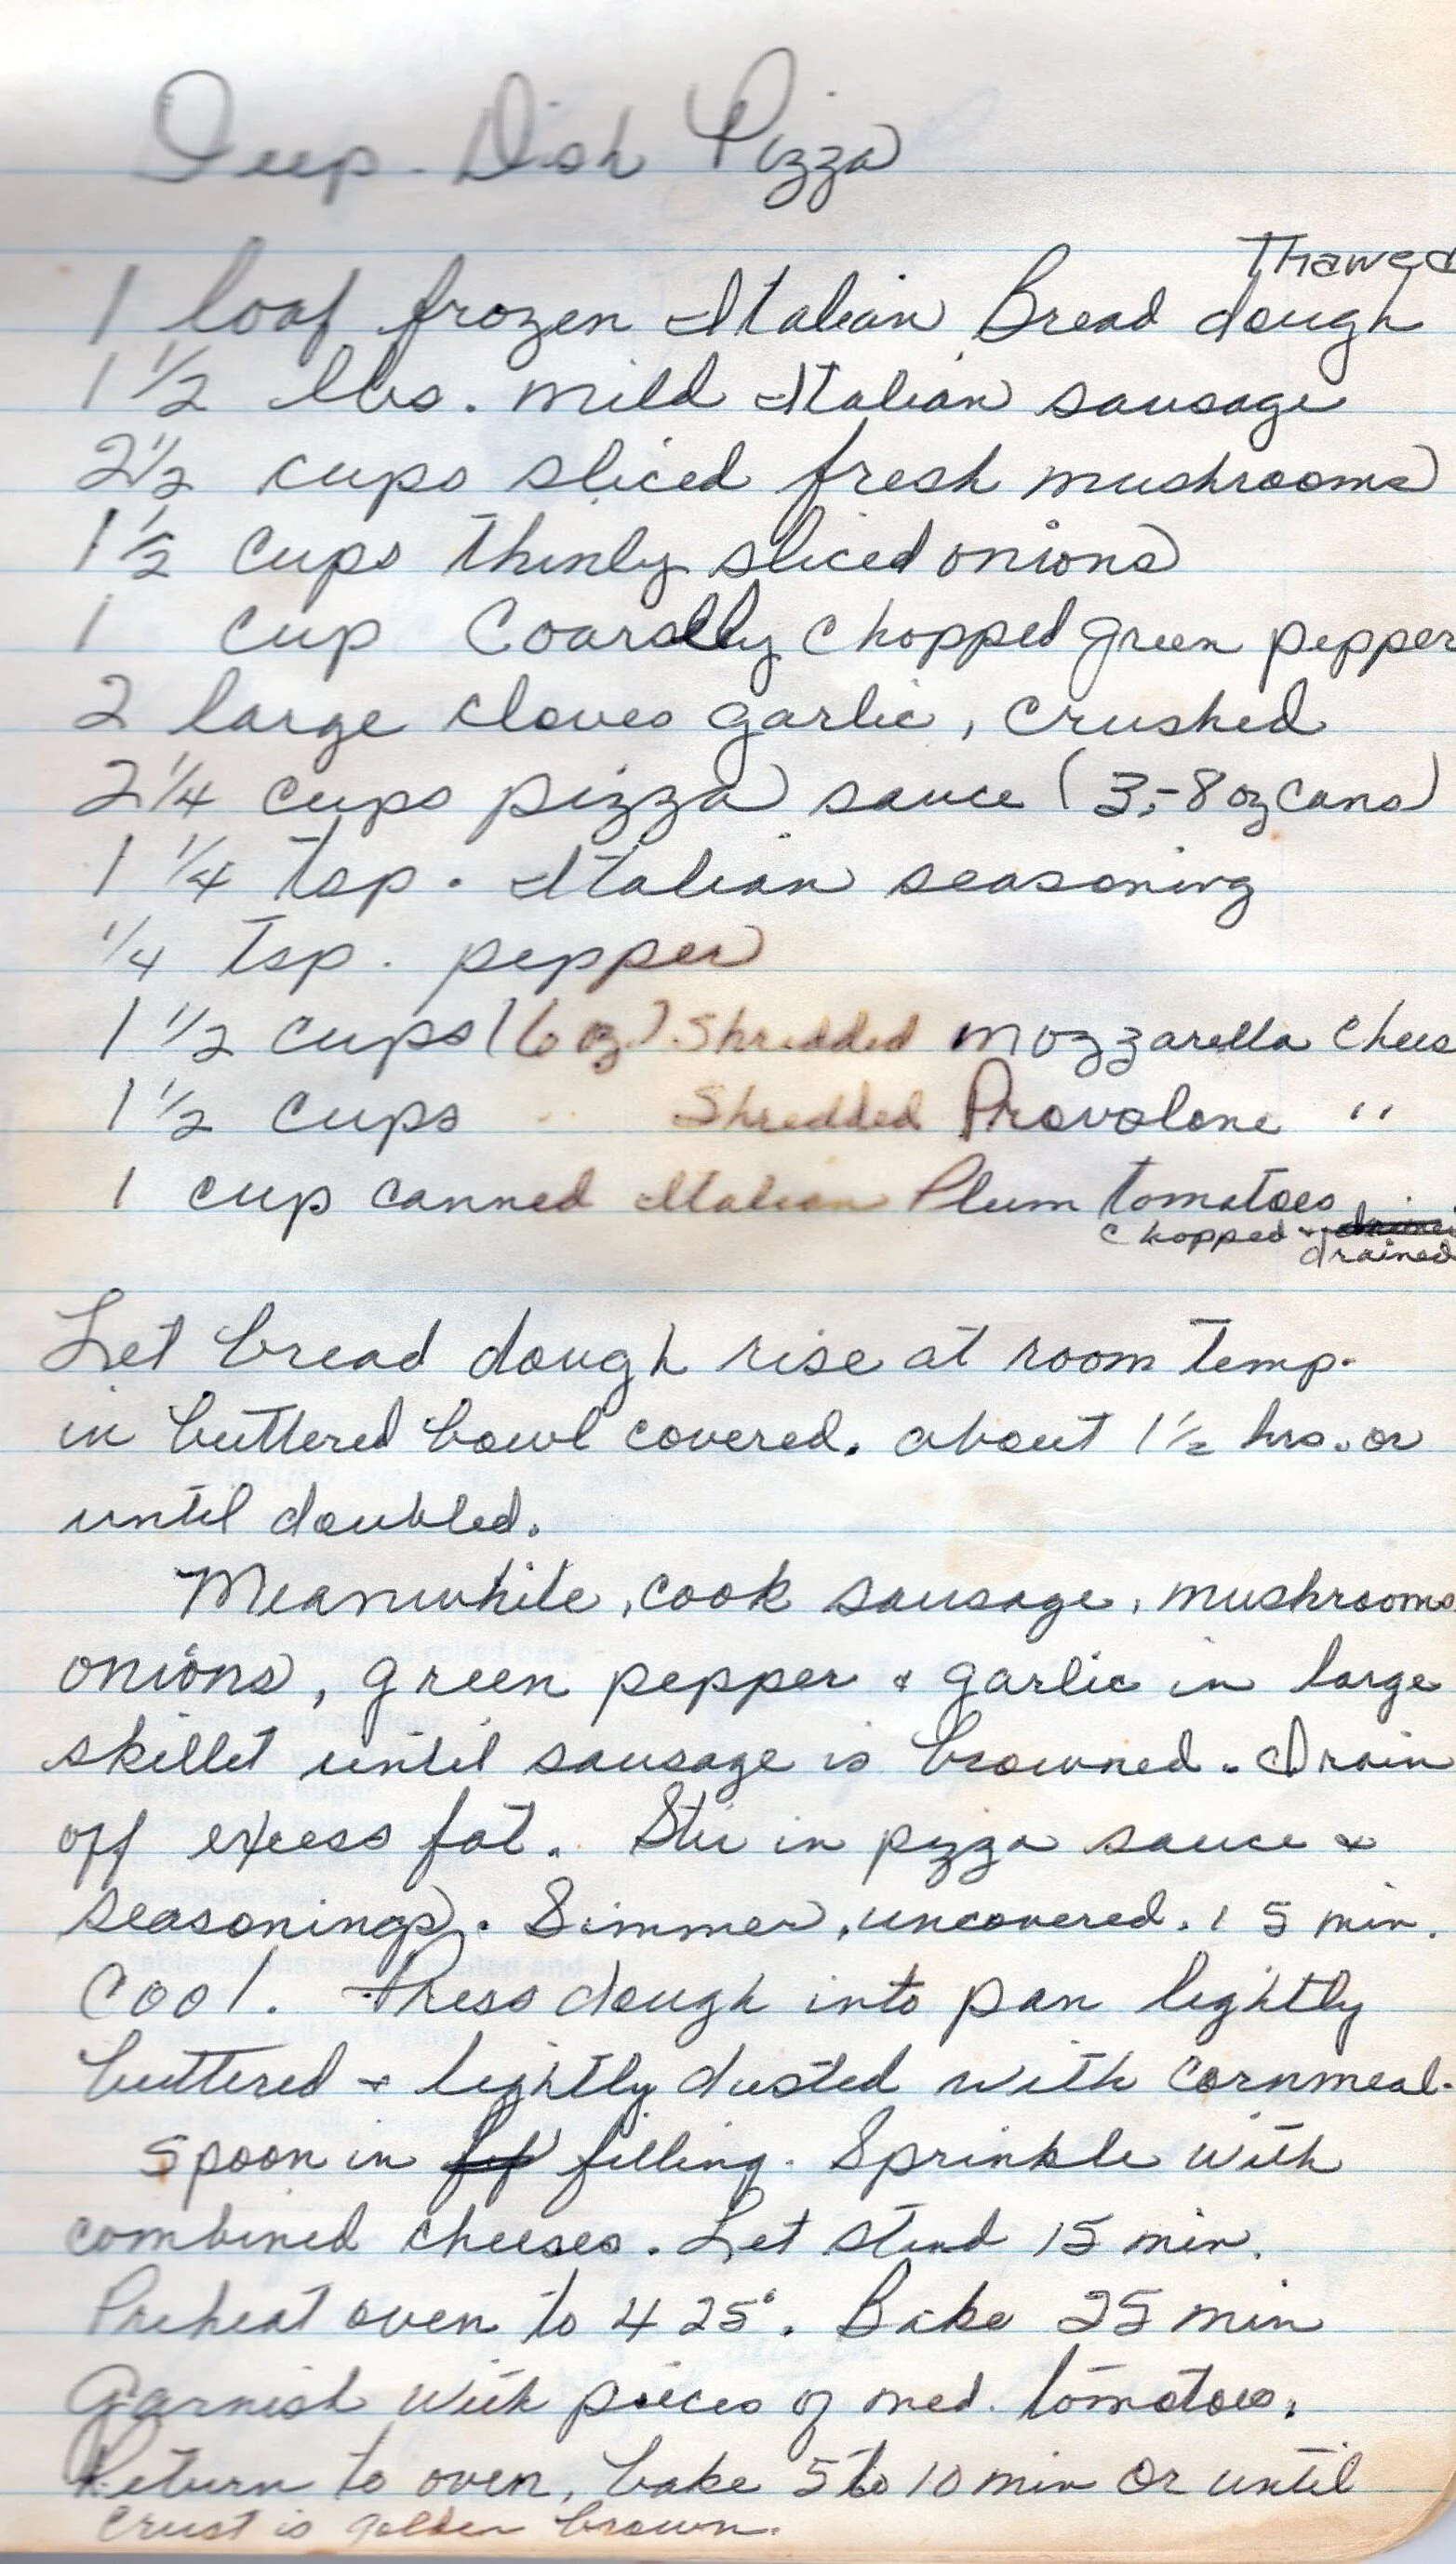 Deep-Dish Pizza
Thawed
1 loaf frozen Italian Bread dough
1 1/2 lbs. mild Italian sausage
2 1/2 cups sliced fresh mushrooms
1 1/2 cups thinly sliced onions
1 cup Coarslly chopped green pepper
2 large cloves garlic, crushed
2 1/4 cups pizza sauce (3,-8 oz cans)
1 1/4 tsp. Italian seasoning
1/4 tsp. pepper
1 1/2 cups (6 oz) Shredded mozzarella chees
1 1/2 cups " Shredded Provolone "
1 cup canned Italian Plum tomatoes
chopped + drained
Let bread dough rise at room temp.
in buttered bowl covered. about 1 1/2 hrs. or
until doubled.
Meanwhile, cook sausage, mushrooms
onions, green pepper & garlic in large
skillet until sausage is browned. Drain
off excess fat. Stir in pizza sauce &
seasonings. Simmer, uncovered. 15 min.
Cool. Press dough into pan lightly
buttered + lightly dusted with cornmeal.
Spoon in filling. Sprinkle with
combined cheeses. Let stand 15 min.
Preheat oven to 425°. Bake 25 min
Garnish with pieces of med. tomatoes.
Return to oven, bake 5 to 10 min or until
crust is golden brown.